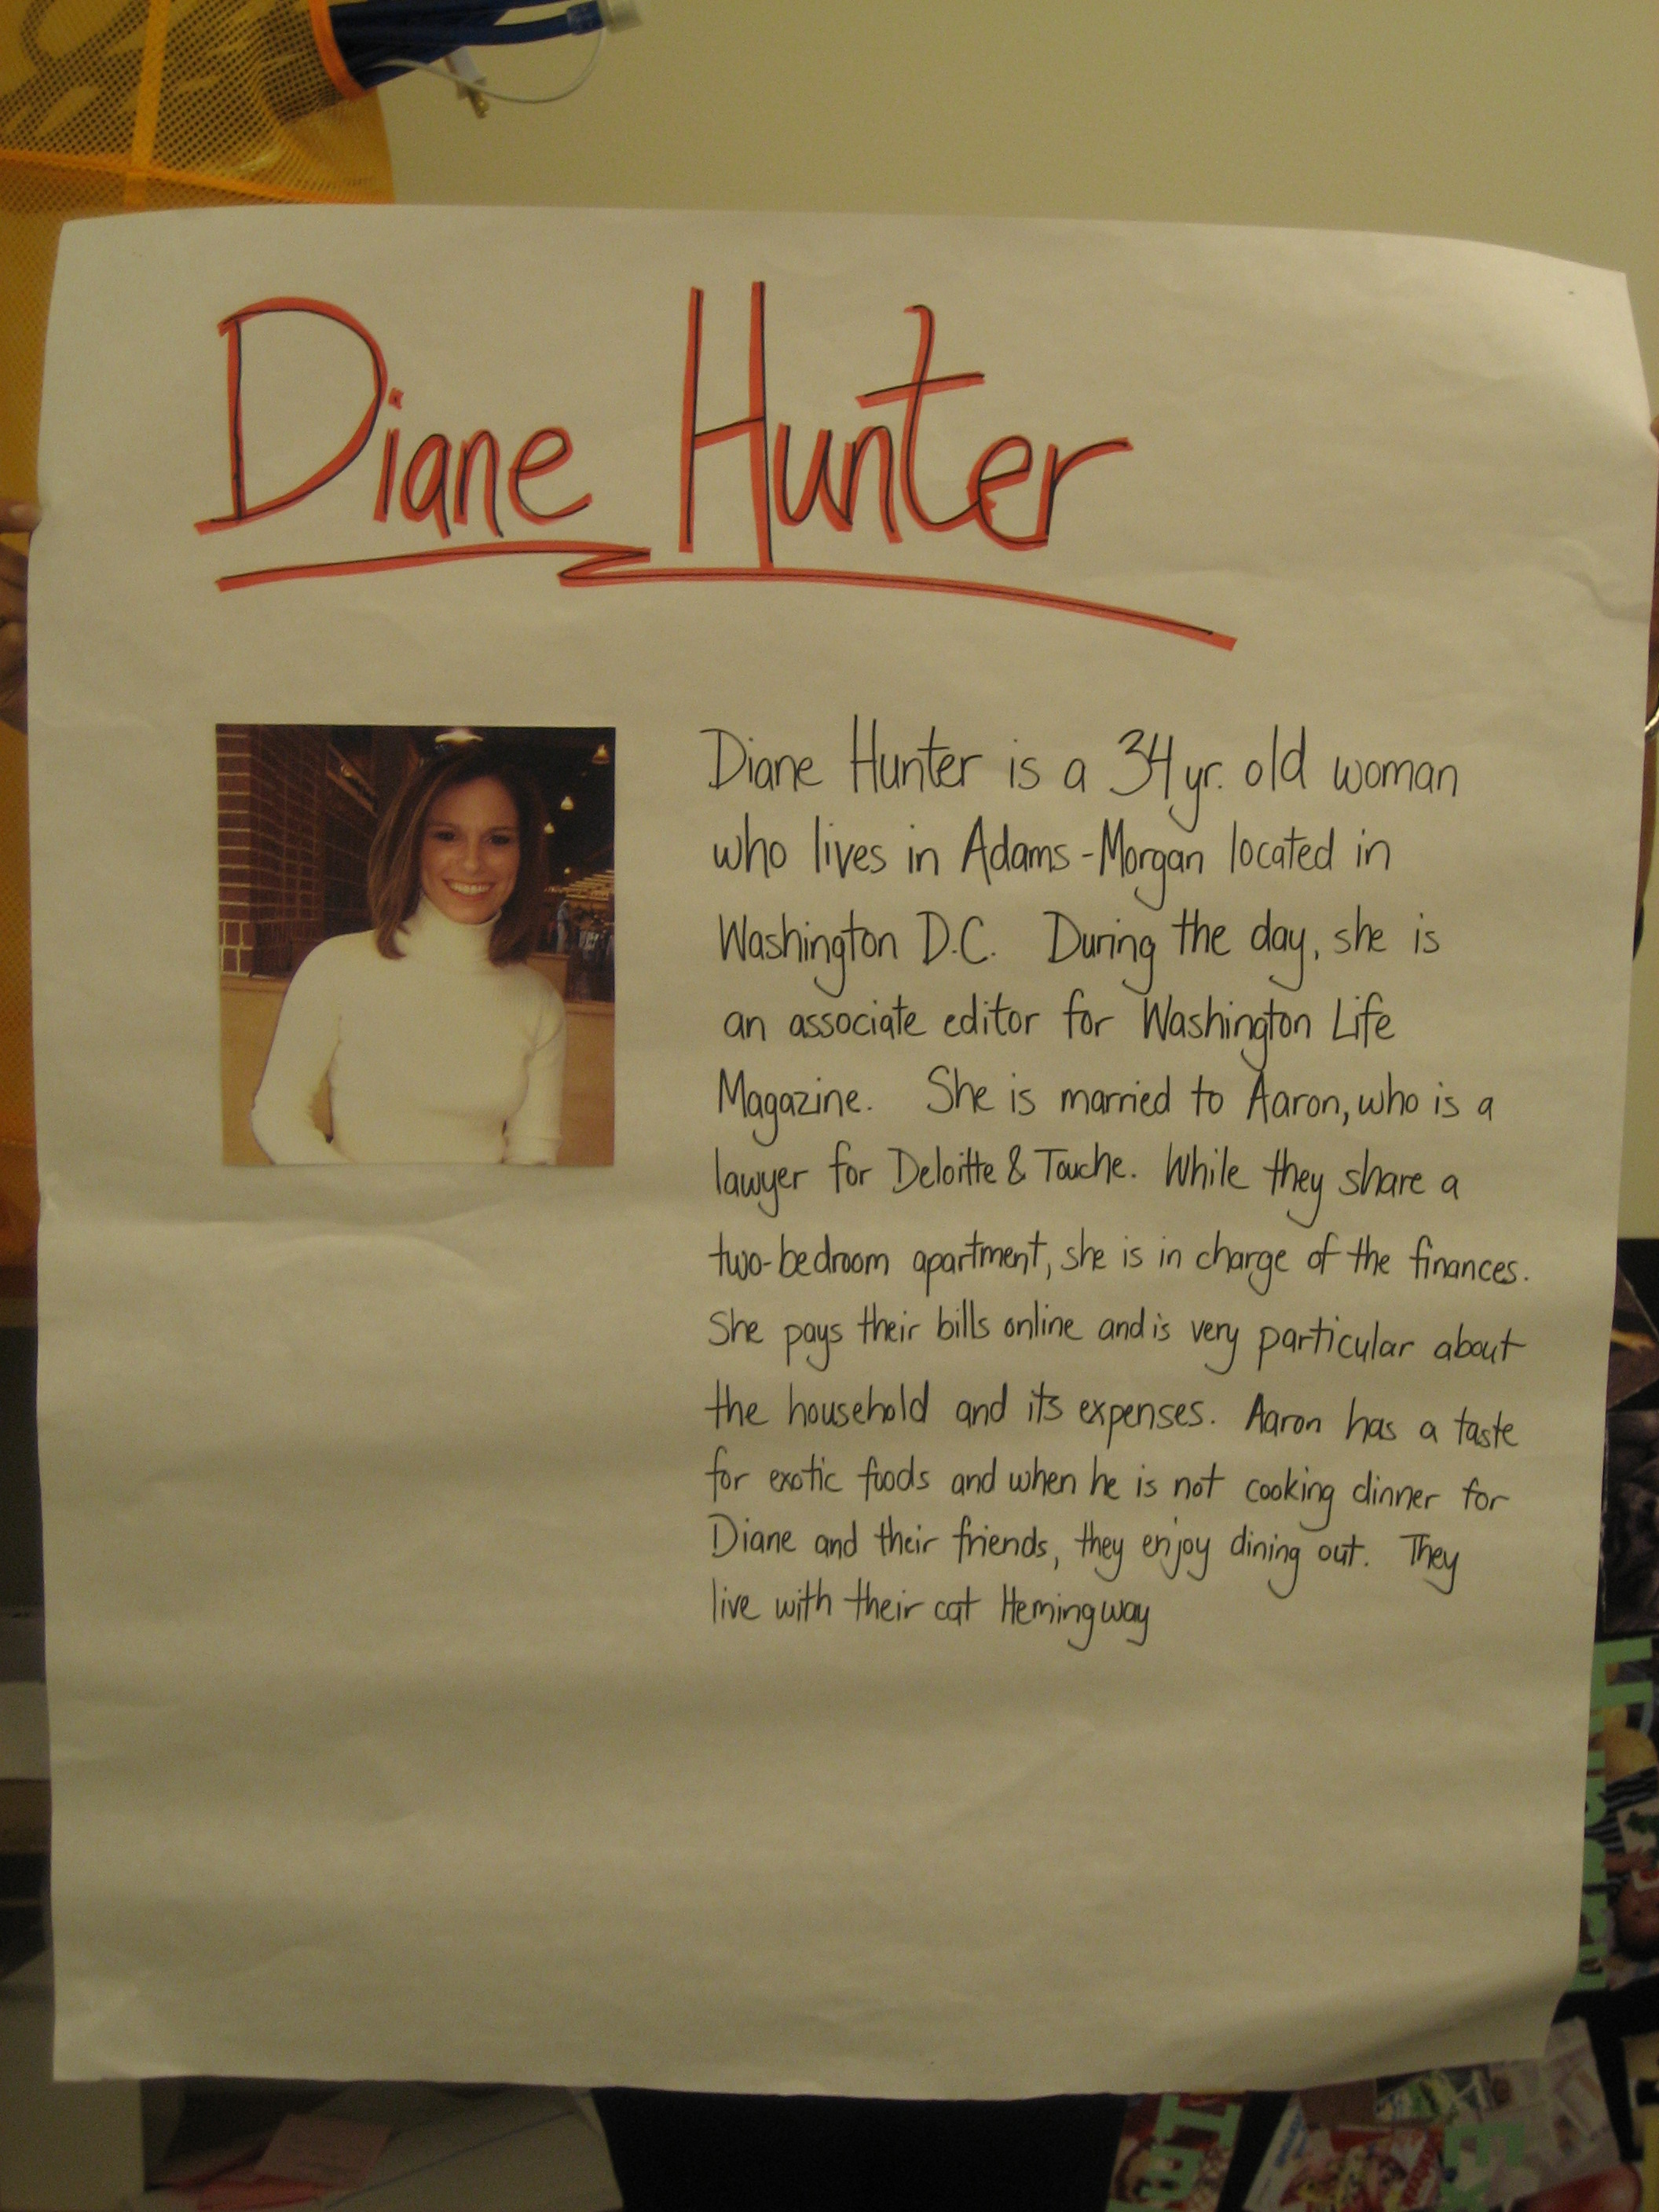 Diane Hunter
Diane Hunter is a 34 yr. old woman
who lives in Adams-Morgan located in
Washington D.C. During the day, she is
an associate editor for Washington Life
Magazine. She is married to Aaron, who is a
lawyer for Deloitte & Touche. While they share a
two-bedroom apartment, she is in charge of the finances.
She pays their bills online and is very particular about
the household and its expenses. Aaron has a taste
for exotic foods and when he is not cooking dinner for
Diane and their friends, they enjoy dining out. They
live with their cat Hemingway